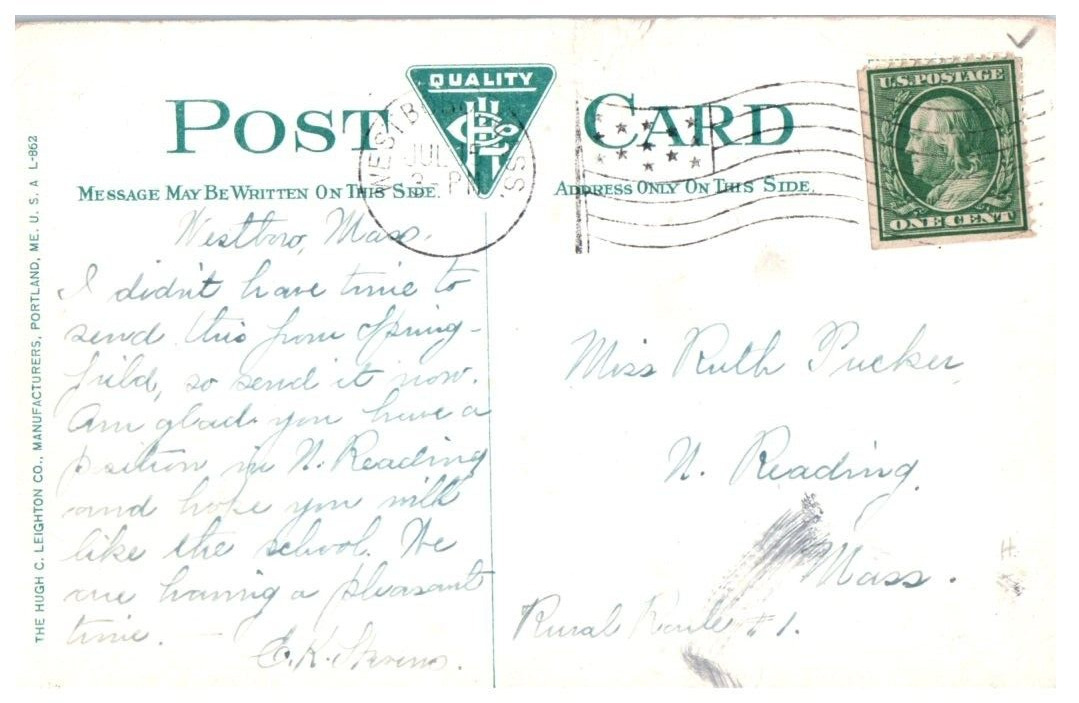 POST CARD
QUALITY
MESSAGE MAY BE WRITTEN ON THIS SIDE.
ADDRESS ONLY ON THIS SIDE.
U.S. POSTAGE
ONE CENT
JUL
THE HUGH C. LEIGHTON CO., MANUFACTURERS, PORTLAND, ME. U. S. A L-862
Westboro, Mass.
I didn't have time to
send this from Spring-
field, so send it now.
Am glad you have a
position in N. Reading
and hope you will
like the school. We
are having a pleasant
time. —
E. K. Stevens.
Miss Ruth Pucker
N. Reading,
Mass.
Rural Route #1.